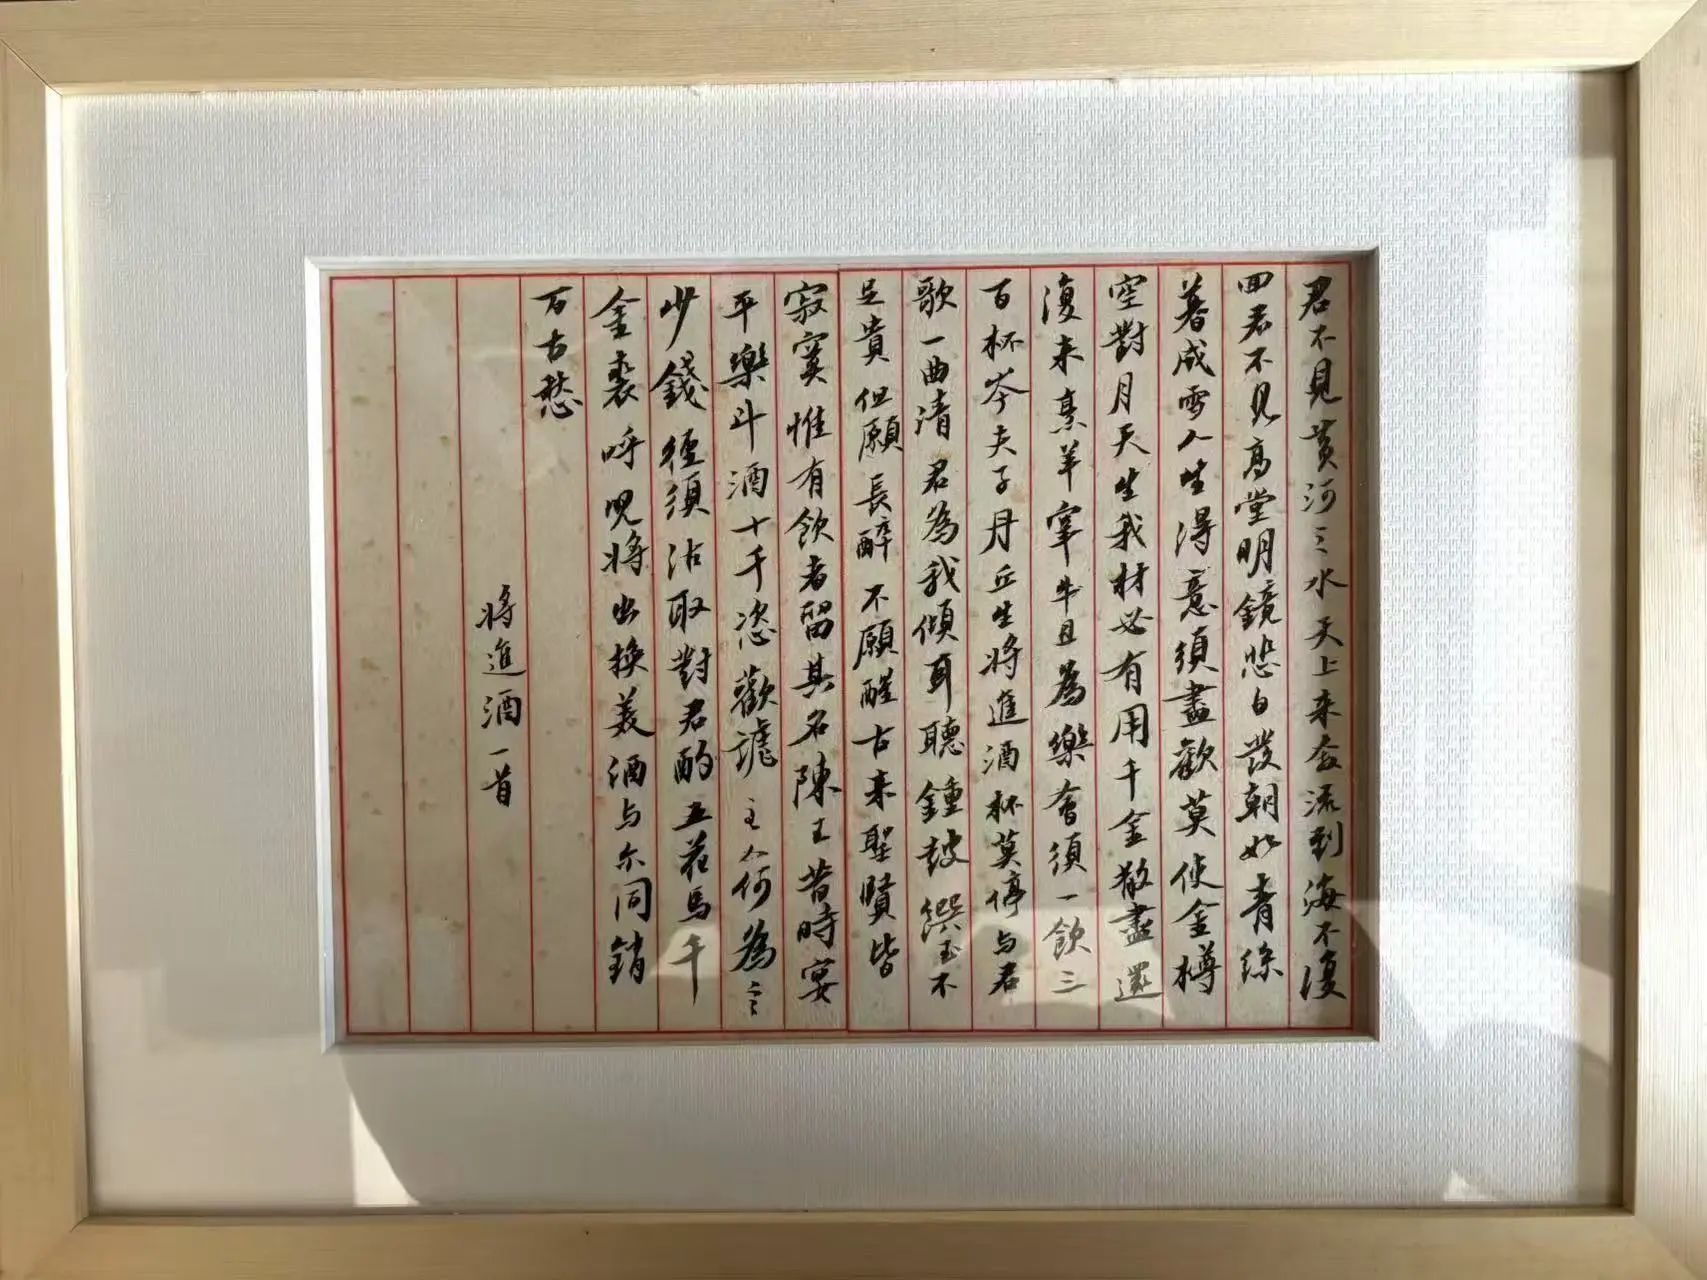 君不見黃河之水天上来奔流到海不復
回君不見高堂明鏡悲白发朝如青絲
暮成雪人生得意須盡歡莫使金樽
空對月天生我材必有用千金散盡還
復来烹羊宰牛且為樂會須一飲三
百杯岑夫子丹丘生將進酒杯莫停与君
歌一曲清君為我傾耳聽鐘鼓饌玉不
足貴但願長醉不願醒古来聖賢皆
寂寞惟有飲者留其名陳王昔時宴
平樂斗酒十千恣歡謔主人何為言
少錢徑須沽取對君酌五花馬千
金裘呼兒將出換美酒与尔同銷
万古愁
將進酒一首